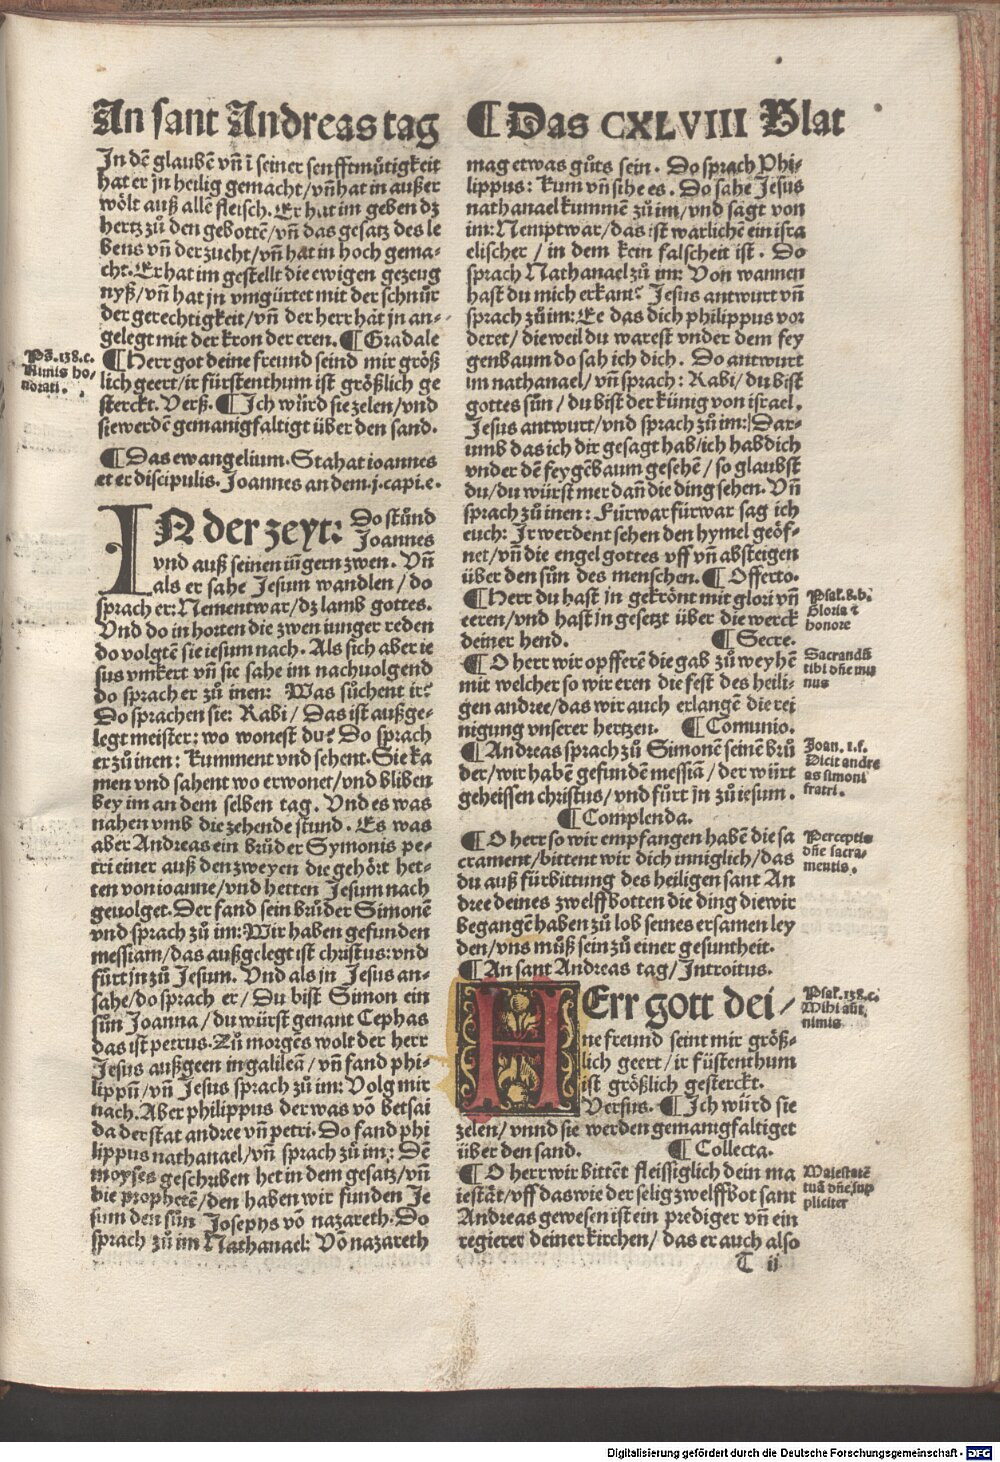 An sant Andreas tag
¶ Das CXLVIII Blat
In dẽ glaubẽ vñ ĩ seiner senfftmůtigkeit
hat er jn heilig gemacht / vñ hat in außer
wölt auß allẽ fleisch. Er hat im geben dz
hertz zů den gebottẽ / vñ das gesatz des le
bens vñ der zucht / vñ hat in hoch gema-
cht. Er hat im gestellt die ewigen gezeug
nyß / vñ hat jn vmgürtet mit der schnůr
der gerechtigkeit / vñ der herr hat jn an-
gelegt mit der kron der eren. ¶ Gradale
¶ Herr got deine freund seind mir größ
lich geert / ir fürstenthum ist größlich ge
sterckt. Verß. ¶ Ich würd sie zelen / vnd
sie werden gemanigfaltigt über den sand.
Ps. 138. c.
Nimis ho-
norati.
¶ Das ewangelium. Stabat ioannes
et ex discipulis. Joannes an dem .j. capi. e.
IN der zeyt: Do stůnd
Joannes
vnd auß seinen iũgern zwen. Vñ
als er sahe Jesum wandlen / do
sprach er: Nement war / dz lamb gottes.
Vnd do in horten die zwen iunger reden
do volgtẽ sie iesum nach. Als sich aber ie
sus vmkert vñ sie sahe im nachuolgend
do sprach er zů inen: Was sůchent ir?
Do sprachen sie: Rabi / Das ist außge-
legt meister: wo wonest du? Do sprach
er zů inen: Kumment vnd sehent. Sie ka
men vnd sahent wo er wonet / vnd bliben
bey im an dem selben tag. Vnd es was
nahen vmb die zehende stund. Es was
aber Andreas ein brůder Symonis pe-
tri einer auß den zweyen die gehört het-
ten von ioanne / vnd hetten Jesum nach
geuolget. Der fand sein brůder Simonẽ
vnd sprach zů im: Wir haben gefunden
messiam / das außgelegt ist christus: vnd
fůrt jn zů Jesum. Vnd als jn Jesus an-
sahe / do sprach er / Du bist Simon ein
sůn Joanna / du würst genant Cephas
das ist petrus. Zů morgẽs wolt der herr
Jesus außgeen in galileã / vñ fand phi-
lippũ / vñ Jesus sprach zů im: Volg mir
nach. Aber philippus der was võ betsai
da der stat andree vñ petri. Do fand phi
lippus nathanael / vñ sprach zů im: Dẽ
moyses geschriben het in dem gesatz / vñ
die prophetẽ / den haben wir funden Je
sum den sůn Josephs võ nazareth. Do
sprach zů im Nathanael: Võ nazareth
mag etwas gůts sein. Do sprach Phi-
lippus: Kum vñ sihe es. Do sahe Jesus
nathanael kummẽ zů im / vnd sagt von
im: Nempt war / das ist warlichẽ ein isra
elischer / in dem kein falscheit ist. Do
sprach Nathanael zů im: Von wannen
hast du mich erkant? Jesus antwurt vñ
sprach zů im: Ee das dich philippus vor
deret / die weil du warest vnder dem fey
genbaum do sah ich dich. Do antwurt
im nathanael / vñ sprach: Rabi / du bist
gottes sůn / du bist der künig von israel.
Jesus antwurt / vnd sprach zů im: Dar-
umb das ich dir gesagt hab / ich hab dich
vnder dẽ feygẽbaum gesehẽ / so glaubst
du / du würst mer dañ die ding sehen. Vñ
sprach zů inen: Fürwar fürwar sag ich
euch: Jr werdent sehen den hymel geöf-
net / vñ die engel gottes vff vñ absteigen
über den sůn des menschen. ¶ Offerto.
¶ Herr du hast jn gekrönt mit glori vñ
eeren / vnd hast jn gesetzt über die werck
deiner hend. ¶ Secre.
¶ O herr wir opfferẽ die gab zů weyhẽ
mit welcher so wir eren die fest des heili-
gen andree / das wir auch erlangẽ die rei
nigung vnserer hertzen. ¶ Comunio.
¶ Andreas sprach zů Simonẽ seinẽ brů
der / wir habẽ gefundẽ messiã / der würt
geheissen christus / vnd fůrt jn zů iesum.
¶ Complenda.
¶ O herr so wir empfangen habẽ die sa
crament / bittent wir dich inniglich / das
du auß fürbittung des heiligen sant An
dree deines zwelffbotten die ding die wir
begangẽ haben zů lob seines ersamen ley
den / vns můß sein zů einer gesuntheit.
¶ An sant Andreas tag / Introitus.
HErr gott dei /
ne freund seint mir größ-
lich geert / ir füstenthum
ist größlich gesterckt.
Versus. ¶ Ich würd sie
zelen / vnnd sie werden gemanigfaltiget
über den sand. ¶ Collecta.
¶ O herr wir bittẽt fleissiglich dein ma
iestāt / vff das wie der selig zwelffbot sant
Andreas gewesen ist ein prediger vñ ein
regierer deiner kirchen / das er auch also
T ii
Psal. 8. b.
Gloria &
honore
Sacrandũ
tibi dñe mu
nus
Joan. 1. f.
Dicit andre
as simoni
fratri.
Perceptis
dñe sacra-
mentis.
Psal. 138. c.
Mihi aũt
nimis
Maiestatẽ
tuã dñe sup
pliciter
Digitalisierung gefördert durch die Deutsche Forschungsgemeinschaft - DFG